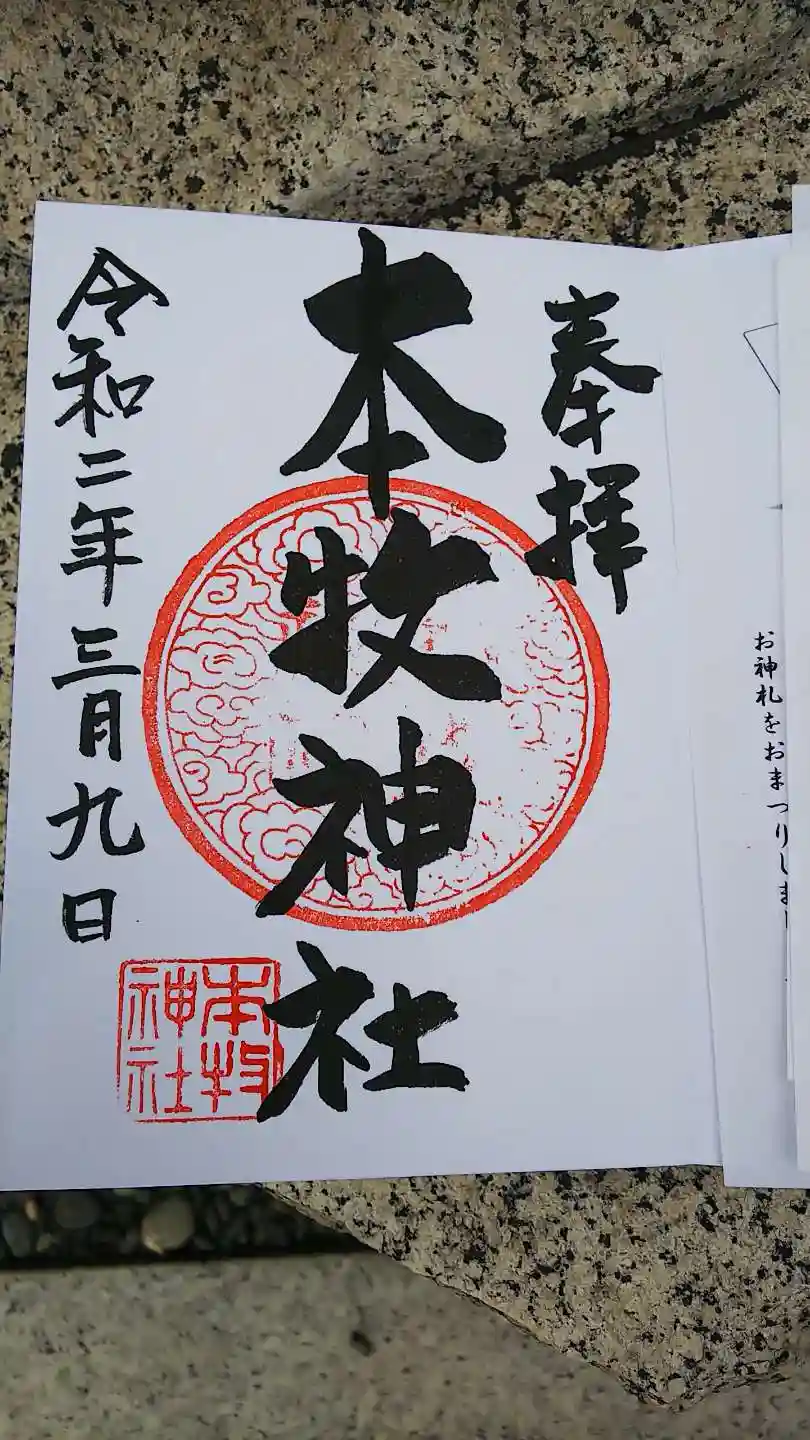 お神札をおまつりしま
奉拝
本牧神社
令和二年三月九日
本牧
神社